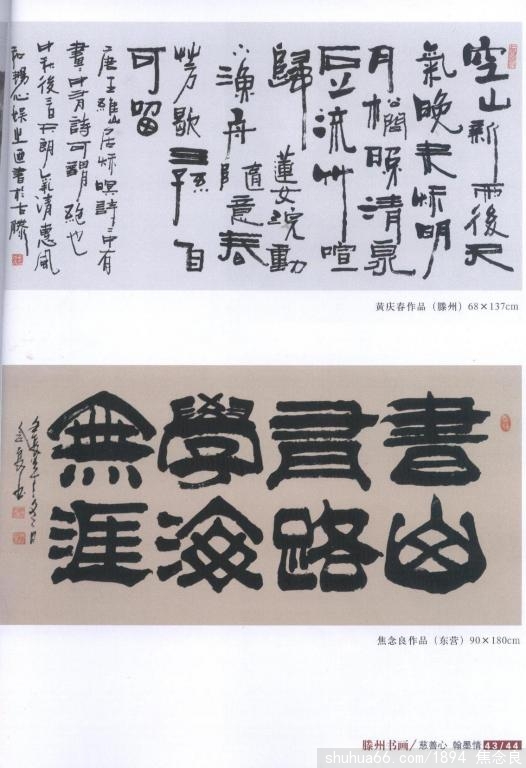 空山新雨後天
氣晚来秋明
月松間照清泉
石上流竹喧
歸蓮女浣動
下漁舟随意春
芳歇王孫自
可留
唐王維山居秋暝詩中有
畫中有詩可謂絶也
中秋後三日天朗氣清惠風
和暢心娱書於古滕
黄庆春作品（滕州）68×137cm
書山
有路
學海
無涯
焦念良作品（东营）90×180cm
滕州书画/慈善心 翰墨情 43/44
shuhua66.com/1894 焦念良